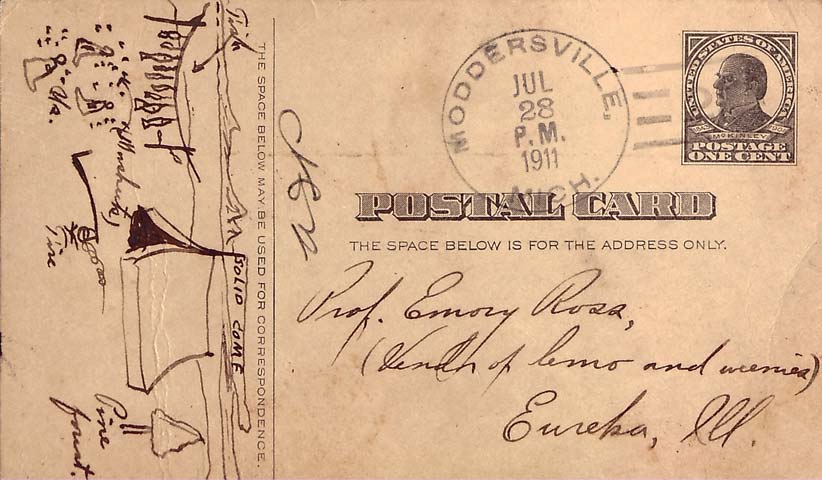 MODDERSVILLE,
MICH.
JUL
28
P.M.
1911
UNITED STATES OF AMERICA
McKINLEY
POSTAGE
ONE CENT
POSTAL CARD
THE SPACE BELOW IS FOR THE ADDRESS ONLY.
Prof. Emory Ross,
(Vendor of lemo and weenies)
Eureka, Ill.
THE SPACE BELOW MAY BE USED FOR CORRESPONDENCE.
SOLID COME
Pine
forest.